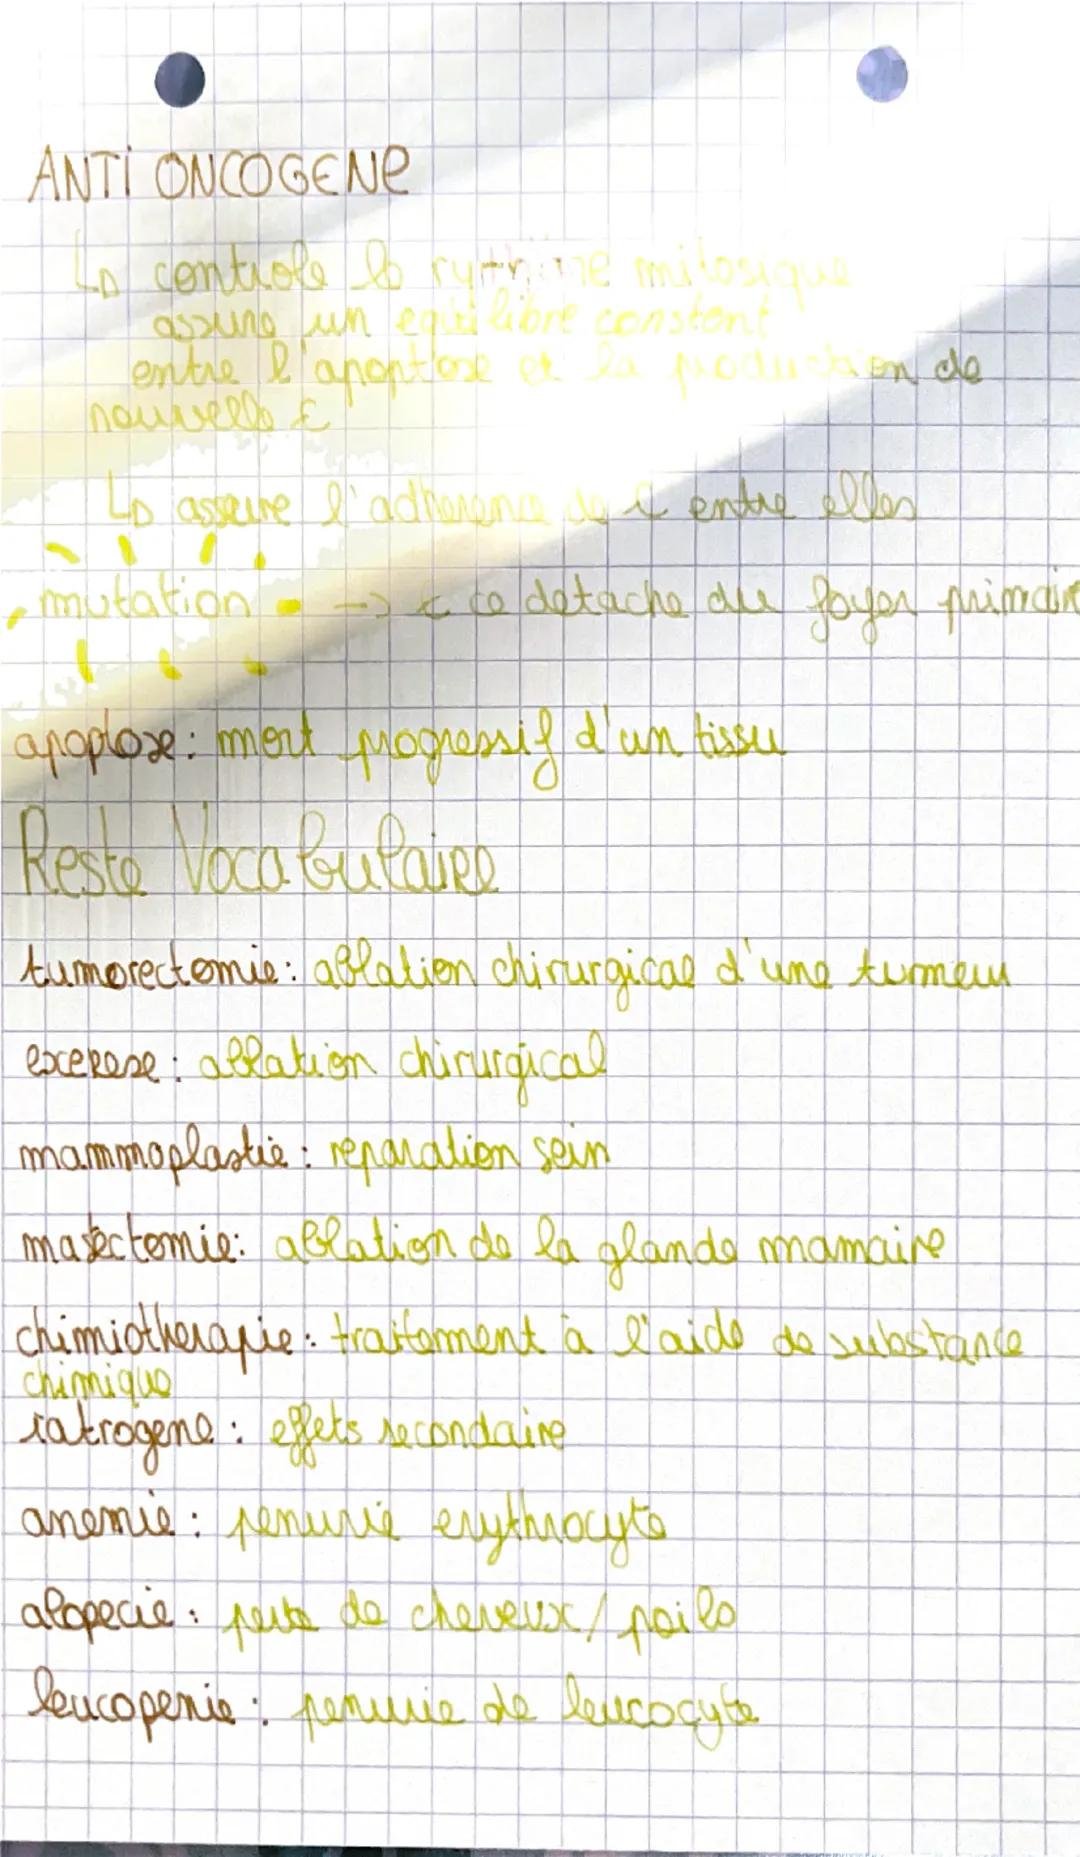 ANTI ONCOGENE
↳ controle le rythme mitosique
assure un equilibre constant
entre l'apoptose et la production de
nouvelle ₵
↳ assure l'adherence de ₵ entre elles
mutation -> ₵ ce detache du foyer primaire
apoptose: mort progressif d'un tissu
Reste Vocabulaire
tumorectomie: ablation chirurgical d'une tumeur
exerese: ablation chirurgical
mammoplastie: reparation sein
masectomie: ablation de la glande mamaire
chimiotherapie: traitement à l'aide de substance
chimique
iatrogene: effets secondaire
anemie: penurie erythrocyte
alopecie: perte de cheveux/poils
leucopenie: penurie de leucocyte